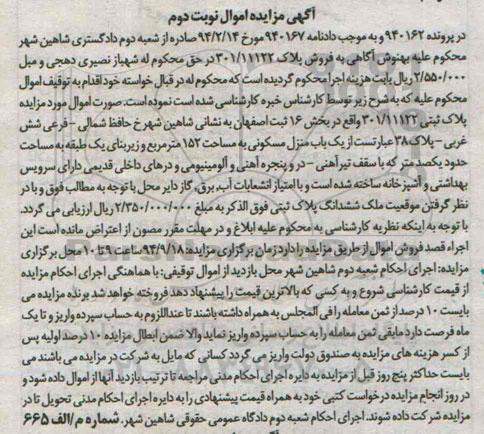 آگهی مزایده اموال نوبت دوم
در پرونده ۹۴۰۱۶۲ و به موجب دادنامه ۹۴۰۱۶۷ مورخ ۹۴/۲/۱۴ صادره از شعبه دوم دادگستری شاهین شهر
محکوم علیه بهنوش آگاهی به فروش پلاک ۳۰۱/۱۱۱۲۲ در حق محکوم له شهباز نصیری دهجی و مبل
۲/۵۵۰/۰۰۰ ریال بابت هزینه اجرا محکوم گردیده است که محکوم له در قبال خواسته خود اقدام به توقیف اموال
محکوم علیه که به شرح زیر توسط کارشناس خبره کارشناسی شده است نموده است. صورت اموال مورد مزایده
پلاک ثبتی ۳۰۱/۱۱۱۲۲ واقع در بخش ۱۶ ثبت اصفهان به نشانی شاهین شهر خ حافظ شمالی - فرعی شش
غربی - پلاک ۳۸ عبارتست از یک باب منزل مسکونی به مساحت ۱۵۲ متر مربع و زیربنای یک طبقه به مساحت
حدود یکصد متر که با سقف تیر آهنی - در و پنجره آهنی و آلومینیومی و درهای داخلی قدیمی دارای سرویس
بهداشتی و آشپزخانه ساخته شده است و با امتیاز انشعابات آب، برق، گاز دایر محل با توجه به مطالب فوق و با در
نظر گرفتن موقعیت ملک ششدانگ پلاک ثبتی فوق الذکر به مبلغ ۲/۳۵۰/۰۰۰/۰۰۰ ریال ارزیابی می گردد.
با توجه به اینکه نظریه کارشناسی به محکوم علیه ابلاغ و در مهلت مقرر مصون از اعتراض مانده است این
اجراء قصد فروش اموال از طریق مزایده را دارد زمان برگزاری مزایده: ۹۴/۹/۱۸ ساعت ۹ تا ۱۰ محل برگزاری
مزایده: اجرای احکام شعبه دوم شاهین شهر محل بازدید از اموال توقیفی: با هماهنگی اجرای احکام مزایده
از قیمت کارشناسی شروع و به کسی که بالاترین قیمت را پیشنهاد دهد فروخته خواهد شد برنده مزایده می
بایست ۱۰ درصد از ثمن معامله را فی المجلس به همراه داشته باشند تا عنداللزوم به حساب سپرده واریز و تا یک
ماه فرصت دارد مابقی ثمن معامله را به حساب سپرده واریز نماید والا ضمن ابطال مزایده ۱۰ درصد اولیه پس
از کسر هزینه های مزایده به صندوق دولت واریز می گردد کسانی که مایل به شرکت در مزایده می باشند می
بایست حداکثر پنج روز قبل از مزایده به دایره اجرای احکام مدنی مراجعه تا ترتیب بازدید آنها از اموال داده شود و
در روز انجام مزایده درخواست کتبی خود به همراه قیمت پیشنهادی را به دایره اجرای احکام مدنی تحویل تا در
مزایده شرکت داده شوند. اجرای احکام شعبه دوم دادگاه عمومی حقوقی شاهین شهر. شماره م/الف ۶۶۵